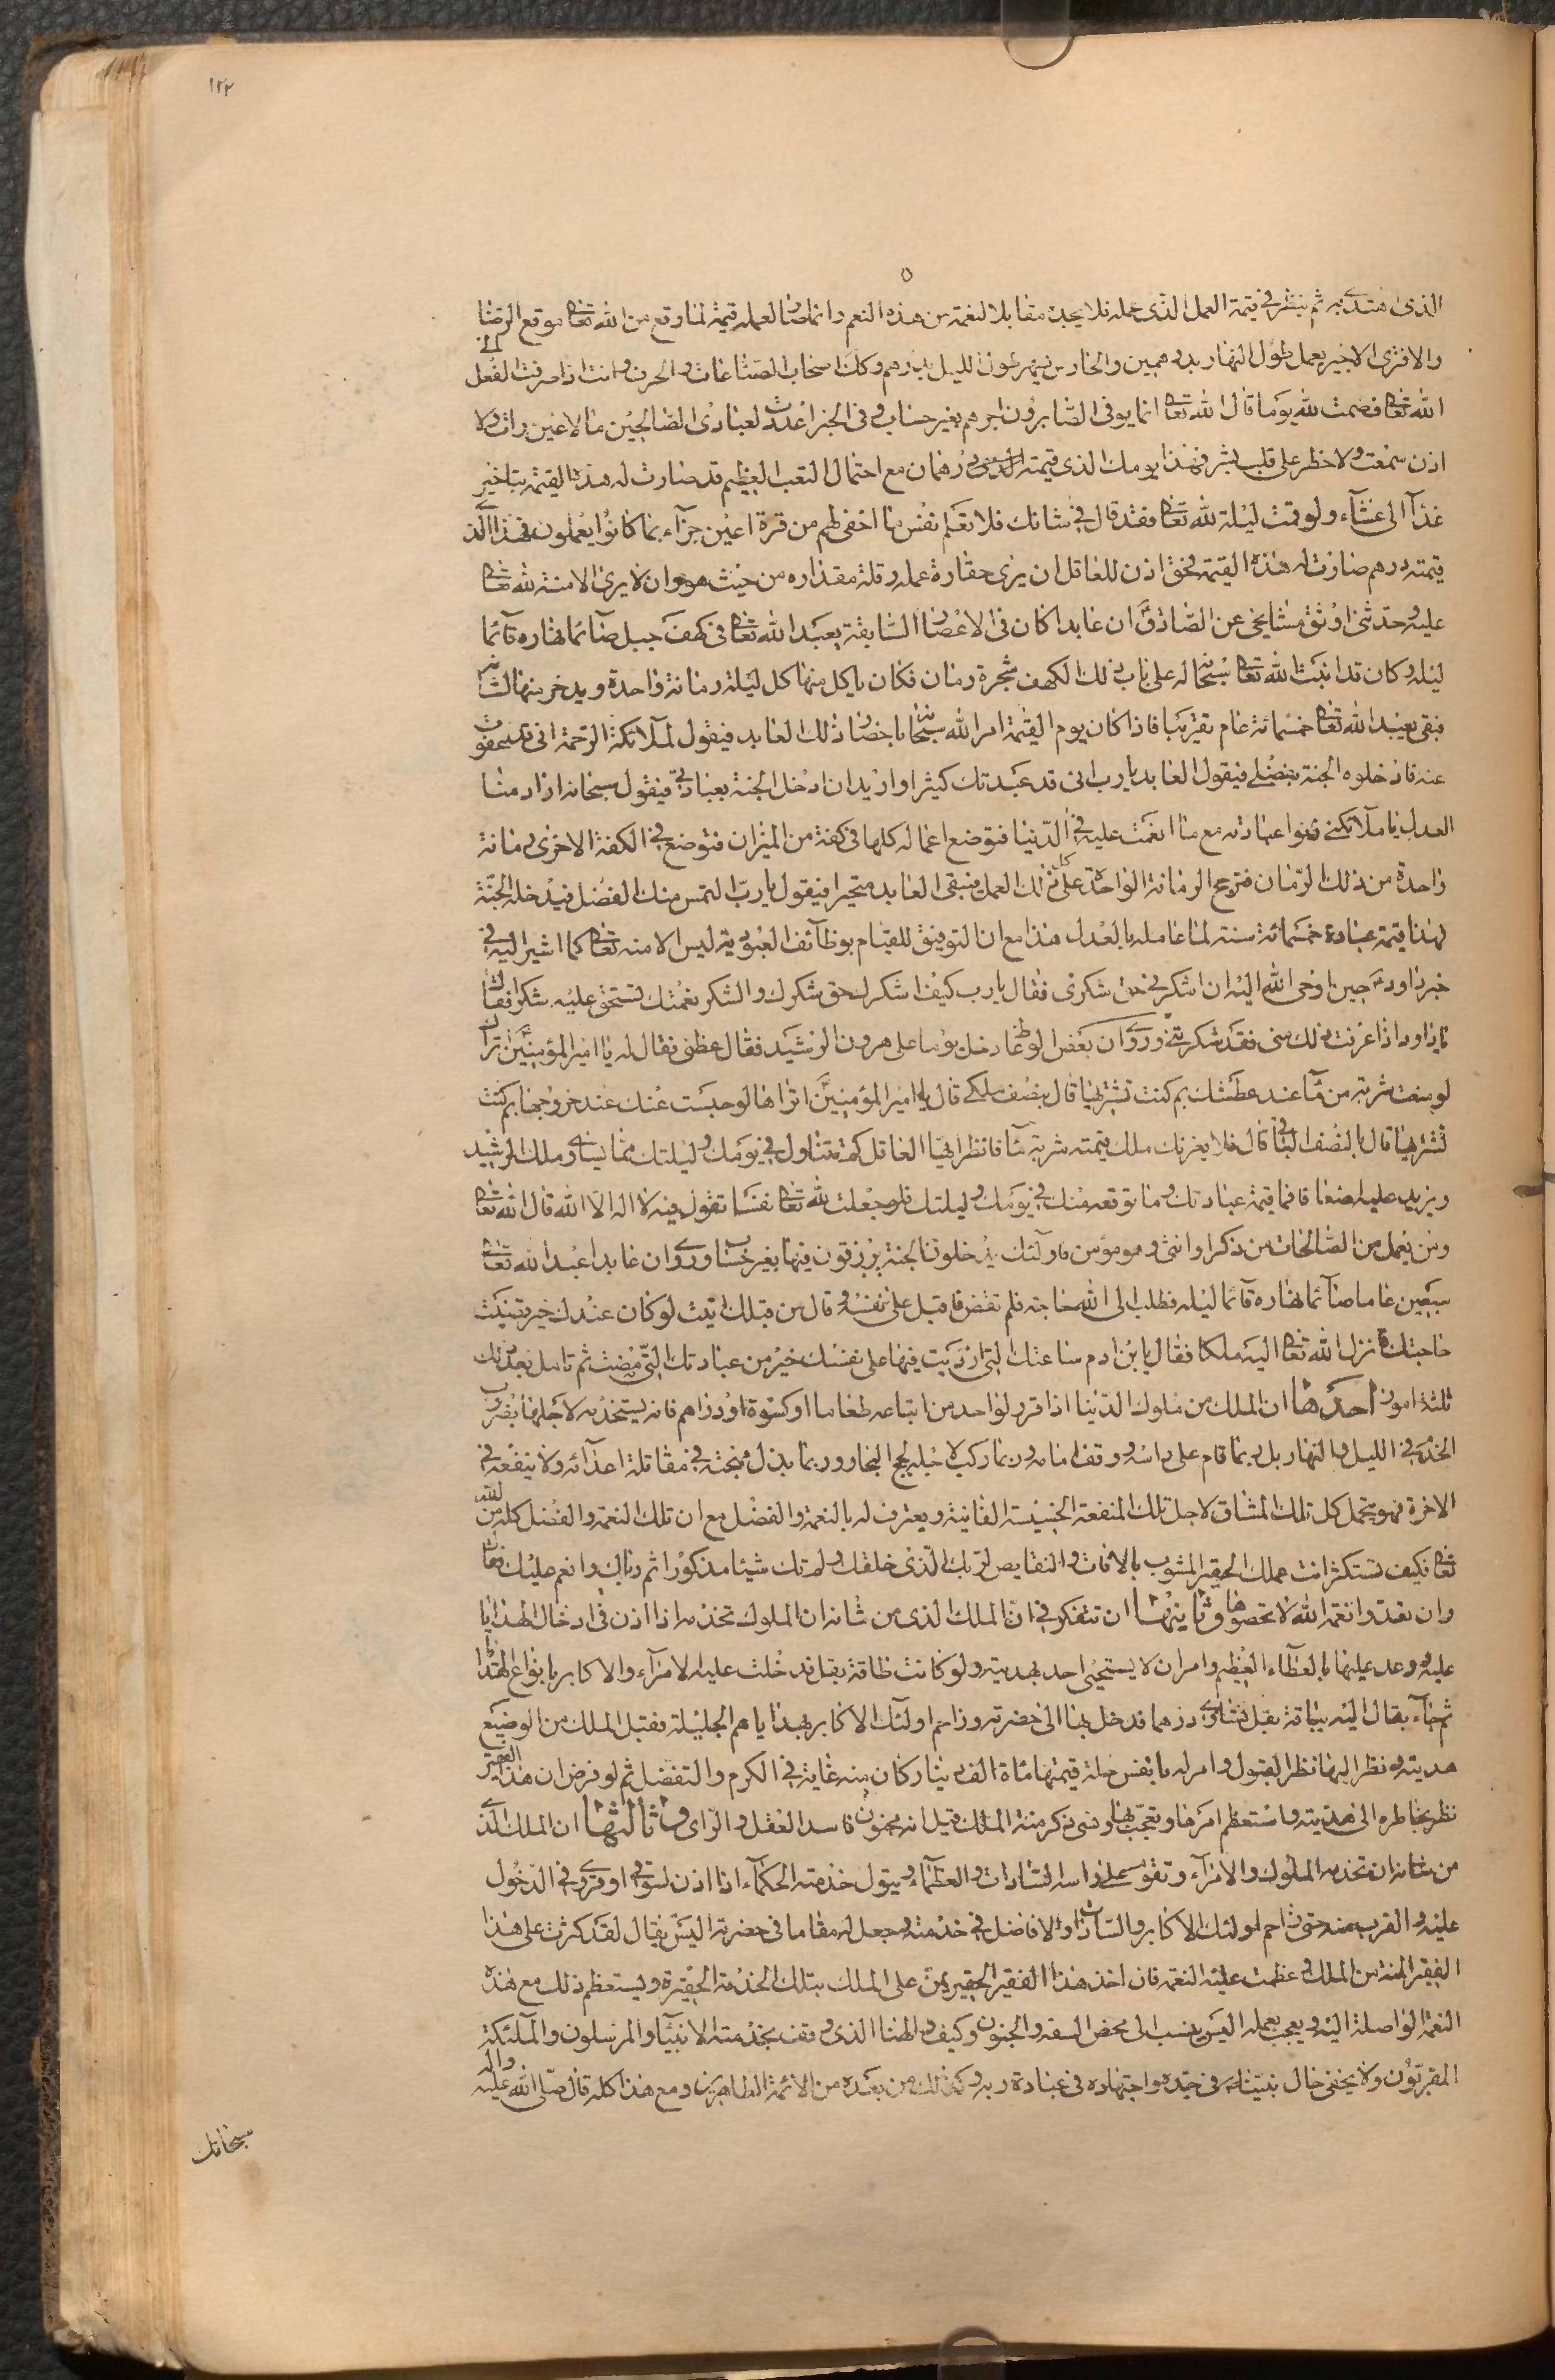 ١٢٢
الذى هتدى به ثم ينظر فى قيمة العمل الذى عمله فلا يجده مقابلا لنعمة من هذه النعم وانما صار لعمله قيمة لما وقع من الله تعالى موقع الرضا
والا فترى الاجير يعمل طول النهار بدرهمين والحارس يسهر طول الليل بدرهم وكذا اصحاب الصناعات والحرف وانت اذا صرفت الفعل الى
الله تعالى فصمت لله يوما قال الله تعالى انما يوفى الصابرون اجرهم بغير حساب وفى الخبر اعددت لعبادى الصالحين ما لا عين رات ولا
اذن سمعت ولا خطر على قلب بشر فهذا يومك الذى قيمته درهمان مع احتمال التعب العظيم قد صارت له هذه القيمة بتاخير
غذآ الى عشآء ولو قمت ليلة لله تعالى فقد قال فى شانك فلا تعلم نفس ما اخفى لهم من قرة اعين جزآء بما كانوا يعملون فهذا الذى
قيمته درهم صارت له هذه القيمة فحق اذن للعاقل ان يرى حقارة عمله وقلة مقداره من حيث هو وان لا يرى الا منة لله تعالى
عليه وحدثنى اوثق مشايخى عن الصادق ان عابدا كان فى الاعصار السابقة يعبد الله تعالى فى كهف جبل صآئما نهاره قآئما
ليله وكان قد انبت الله تعالى سبحانه له على باب ذلك الكهف شجرة رمان فكان ياكل منها كل ليلة رمانة واحدة ويدخر منها لشتائه
فبقى يعبد الله تعالى خمسمائة عام تقريبا فاذا كان يوم القيمة امر الله سبحانه باحضار ذلك العابد فيقول لملآئكة الرحمة انى قد عفوت
عنه فادخلوه الجنة بفضلى فيقول العابد يارب انى قد عبدتك كثيرا واريد ان ادخل الجنة بعبادتى فيقول سبحانه اراد منا
العدل يا ملآئكتى زنوا عبادته مع ما انعمت عليه فى الدنيا فتوضع اعماله كلها فى كفة من الميزان فتوضع فى الكفة الاخرى رمانة
واحدة من ذلك الرمان فترجح الرمانة الواحدة على كل ذلك العمل فيبقى العابد متحيرا فيقول يارب التمس منك الفضل فيدخله الجنة
فهذا قيمة عبادة خمسمائة سنة لما عامله بالعدل هذا مع ان التوفيق للقيام بوظآئف العبودية ليس الا منه تعالى كما اشير اليه فى
خبر داود حين اوحى الله اليه ان اشكرنى حق شكرى فقال يارب كيف اشكرك حق شكرك والشكر نعمتك تستحق عليه شكرا فقال
يا داود اذا عرفت ذلك منى فقد شكرتنى وروى ان بعض الوعاظ دخل يوما على هرون الرشيد فقال عظنى فقال له يا امير المؤمنين اتراك
لو منعت شربة من مآء عند عطشك بم كنت تشتريها قال بنصف ملكى قال يا امير المؤمنين اتراها لو حبست عنك عند خروجها بم كنت
تشتريها قال بالنصف الباقى قال فلا يغرنك ملك قيمته شربة مآء فانظر ايها العاقل كم تتناول فى يومك وليلتك مما يساوى ملك الرشيد
ويزيد عليه اضعافا فما قيمة عبادتك وما توقعه منك فى يومك وليلتك فلو جعلت لله تعالى نفسا تقول فيه لا اله الا الله قال الله تعالى
ومن يعمل من الصالحات من ذكر او انثى وهو مؤمن فاولئك يدخلون الجنة يرزقون فيها بغير حساب وروى ان عابدا عبد الله تعالى
سبعين عاما صآئما نهاره قآئما ليله فطلب الى الله حاجة فلم تقض فاقبل على نفسه وقال من قبلك اتيت لو كان عندك خير قضيت
حاجتك فانزل الله تعالى اليه ملكا فقال يابن ادم ساعتك التى ازريت فيها على نفسك خير من عبادتك التى مضت ثم تامل بعد ذلك
ثلثة امور احدها ان الملك من ملوك الدنيا اذا قرر لواحد من اتباعه طعاما او كسوة او دراهم فانه يستخدمه لاجلها بضروب
الخدم فى الليل والنهار بل ربما قام على راسه ووقف امامه وربما ركب لاجله لجج البحار وربما بذل مهجته فى مقاتلة اعدآئه ولا ينفعه فى
الاخرة فهو يتحمل كل تلك المشاق لاجل تلك المنفعة الخسيسة الفانية ويعترف له بالنعمة والفضل مع ان تلك النعمة والفضل كله من الله
تعالى فكيف تستكثر انت عملك الحقير المشوب بالافات والنقايص لربك الذى خلقك ولم تك شيئا مذكورا ثم رباك وانعم عليك فقال
وان تعدوا نعمة الله لا تحصوها وثانيتها ان تتفكر فى ان الملك الذى من شانه ان الملوك تخدمه اذا اذن فى ادخال الهدايا
عليه ووعد عليها بالعطآء العظيم وامر ان لا يستحيى احد بهديته ولو كانت طاقة بقل فدخلت عليه الامرآء والاكابر بانواع الهدايا
ثم جآء بقال اليه بباقة بقل تساوى درهما فدخل بها الى حضرته وزاحم اولئك الاكابر بهداياهم الجليلة فقبل الملك من الوضيع
هديته ونظر اليها نظر القبول وامر له بانفس خلة قيمتها ماة الف دينار كان منه غاية فى الكرم والتفضل ثم لو فرض ان هذا الفقير
نظر بخاطره الى هديته واستعظم امرها وتعجب بها ونسى ذكر منة الملك قيل انه مجنون فاسد العقل والراى وثالثها ان الملك الذى
من شانه ان تخدمه الملوك والامرآء وتقوم على راسه السادات والعظمآء ويتول خدمته الحكمآء اذا اذن لسوقى او قروى فى الدخول
عليه والقرب منه حتى زاحم اولئك الاكابر والسادات والافاضل فى خدمته وجعل له مقاما فى حضرته اليس يقال لقد كثرت على هذا
الفقير المنة من الملك وعظمت عليه النعمة فان اخذ هذا الفقير الحقير يمن على الملك بتلك الخدمة الحقيرة ويستعظم ذلك مع هذه
النعمة الواصلة اليه ويعجب بعمله اليس ينسب الى محض السفه والجنون وكيف والهنا الذى وقف بخدمته الانبيآء والمرسلون والملئكة
المقربون ولا يخفى حال نبينا فى جده واجتهاده فى عبادة ربه وكذلك من بعده من الائمة الطاهرين ومع هذا كله قال صلى الله عليه واله
سبحانك